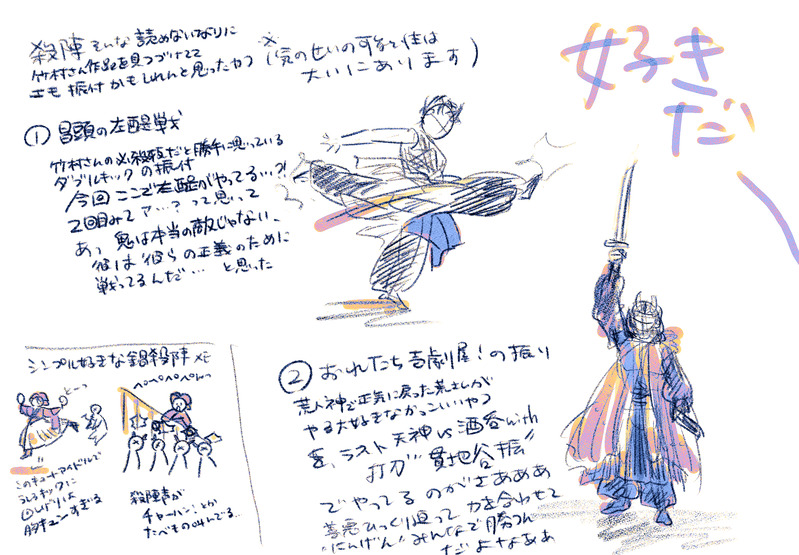 殺陣そんな読めないなりに
竹村さん作品を見つづけてて
これも振付かもしれんと思ったやつ
※(気のせいの可能性は
大いにあります)
好き
だ
① 冒頭の左醍戦
竹村さんの必殺技だと勝手に思っている
ダブルキックの振付
今回ここで左醍がやってる…?!
2回目みてア…?って思って
あっ 鬼は本当の敵じゃない、
彼は彼らの正義のために
戦ってるんだ… と思った
シンプル好きな鍋殺陣メモ
とーっ
ペペペペペんっ
このキュートアイドルで
うしろキックに
回しげりは
胸キュンすぎる
殺陣音が
チャーハン、とか
たべもの叫んでる…
② おれたち壱劇屋!の振り
荒人神で正気に戻った荒さんが
やる大好きなかっこいいやつ
を、ラスト 天神 vs 酒呑 with
打刀"貫地谷振"
でやってるのがさあああ
善悪ひっくり返って 力を合わせて
"にんげん"みんなで勝つん
だよなああ